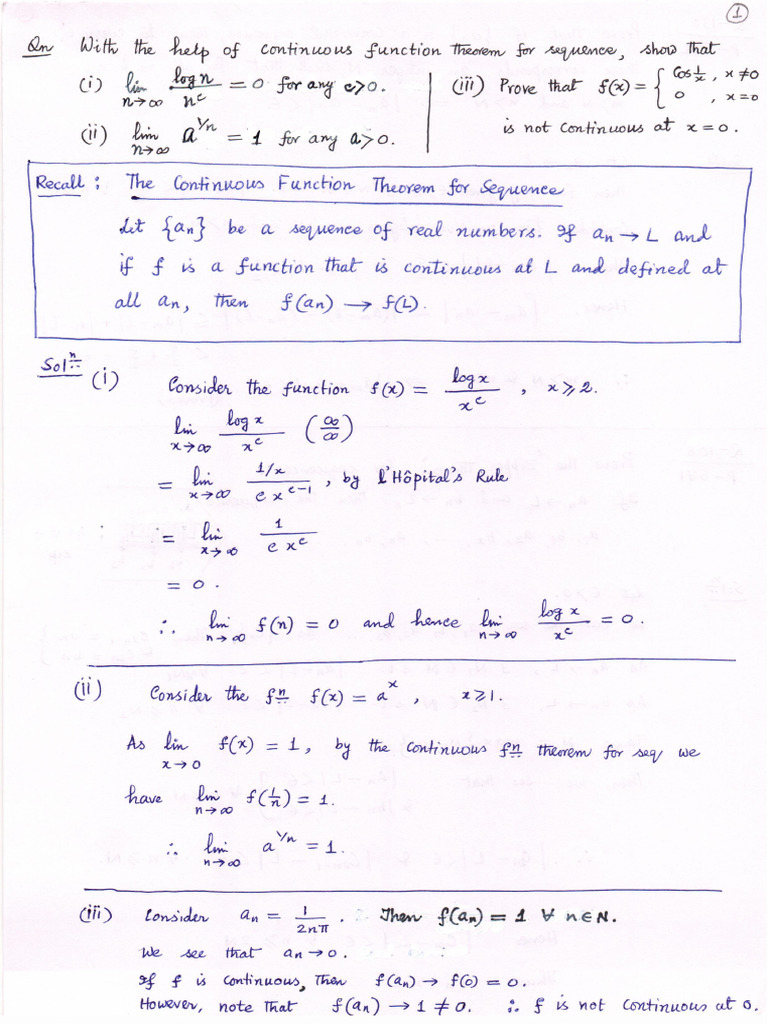 1
Qn With the help of continuous function theorem for sequence, show that
(i) lim n→∞ log n / n^c = 0 for any c>0.
(ii) lim n→∞ a^{1/n} = 1 for any a>0.
(iii) Prove that f(x) = { cos 1/x , x≠0
0 , x=0
is not continuous at x=0.
Recall : The Continuous Function Theorem for Sequence
Let {an} be a sequence of real numbers. If an → L and
if f is a function that is continuous at L and defined at
all an, then f(an) → f(L).
Soln:
(i) Consider the function f(x) = log x / x^c , x ≥ 2.
lim x→∞ log x / x^c (∞/∞)
= lim x→∞ 1/x / c x^{c-1} , by l'Hôpital's Rule
= lim x→∞ 1 / c x^c
= 0.
∴ lim n→∞ f(n) = 0 and hence lim n→∞ log x / x^c = 0.
(ii) Consider the fn f(x) = a^x , x≥1.
As lim x→0 f(x) = 1, by the continuous fn theorem for seq we
have lim n→∞ f(1/n) = 1.
∴ lim n→∞ a^{1/n} = 1.
(iii) Consider an = 1/2nπ . Then f(an) = 1 ∀ n∈N.
We see that an→0.
If f is continuous, Then f(an) → f(0) = 0.
However, note that f(an) → 1 ≠ 0. ∴ f is not continuous at 0.